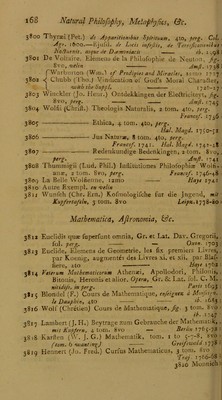 168 Natural Philosophy, Metaphysics, &c.
3800 Thyræi (Pet.) de Apparitionibus Spirituum, 4to, perg. Col.
Agr. 1600.—Ejusd. de Locis infestis,
3801 De Voltaire. Elemens de la Philosophie de Neuton, fig.
8vo, neön Amst. 1738
(Warburton (Wm.) of Prodigies and Miracles, 1727
3802 Chubb (Tho.) Vindication of God's Moral Character,
3803 Winckler (Jo. Henr.) Ontdekkingen der Electriciteyt, fig.
8vo, perg. Amst.
3804 Wolfii (Christ.) Theologia Naturalis, 2 tom. 4to, perg.
Francof. 1736
3805 ——— Ethica, 4 tom. 4to, perg.
Hal. Magd. 1750-51
3806 ——— Jus Naturæ, 8 tom. 4to, perg.
Francof. Hal. Magd. 1741-48
3807 ——— Redenkundige Bedenkingen, 2 tom. 8vo,
perg. Amst. 1741
3808 Thummigii (Lud. Phil.) Institutiones Philosophiæ Wolfianæ, 2 tom. 8vo, perg. Francof. 1740-48
3809 La Belle Wolfienne, 12mo Haye 1741
3810 Autre Exempl. en neön
3811 Wunsch (Chr. Ern.) Kosmologische fur die Jugend, mit
Kupfertafeln, 3 tom. 8vo Leips. 1778-80
Mathematica, Astronomia, &c.
3812 Euclidis quæ supersunt omnia, Gr. et Lat. Dav. Gregorii,
fol. perg. Oxon 1703
3813 Euclide, Elemens de Geometrie, les six premiers Livres,
par Koenig, augmentés des Livres xi. et xii. par Blassiere, 4to Haye 1762
3814 Veterum Mathematicorum Athenæi, Apollodori, Philonis,
Bitonis, Heronis et alior. Opera, Gr. & Lat. fol. C. M.
Paris 1693
3815 Blondel (F.) Cours de Mathematique, enseigné à Monseig.
le Dauphin, 4to
3816 Wolf (Chrétien) Cours de Mathematique, fig. 3 tom. 8vo
3817 Lambert (J. H.) Beytrage zum Gebrauche der Mathematik,
mit Kupfern, 4 tom. 8vo Berlin 1765-
3818 Karsten (W. J. G.) Mathematik, tom. 1 to
(tom. 6 wanting) Greifswald
3819 Hennert (Jo. Fred.) Cursus Mathematicus, 3 tom. 8vo
Traj. 1766-
3820 Munnich